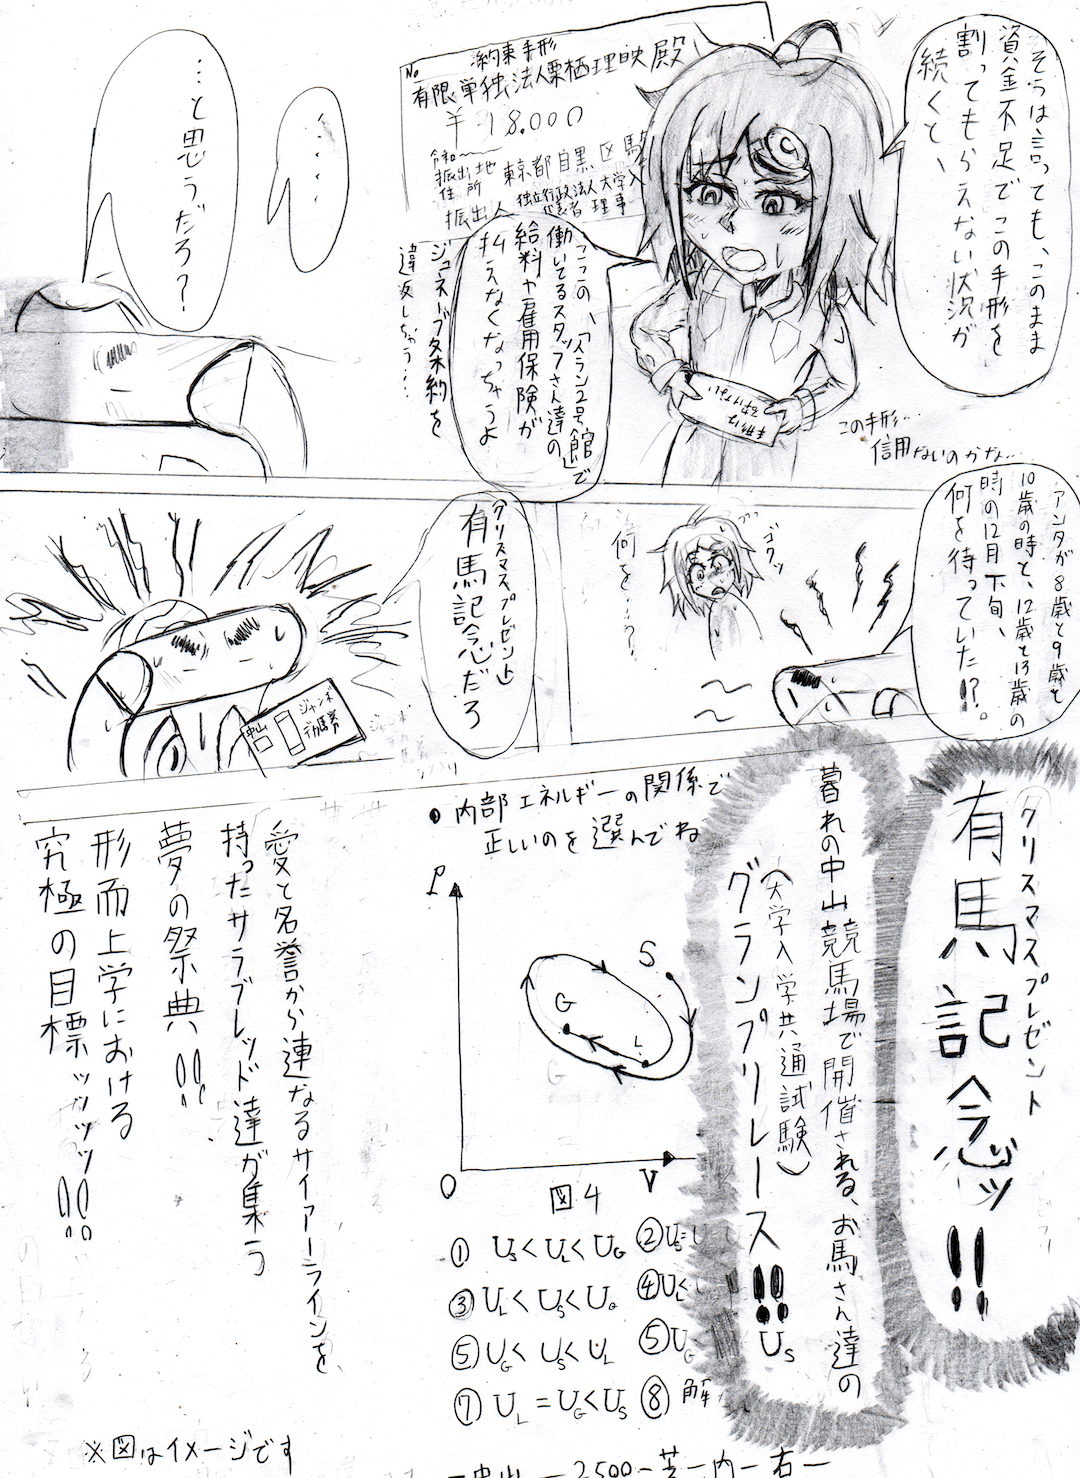 そうは言っても、このまま
資金不足でこの手形を
割ってもらえない状況が
続くと、
No
約束手形
有限単独法人栗栖理映殿
¥18.000
振出地
住所
東京都目黒区駒
振出人
独立行政法人大学入
代表者 理事
ここの、「スラン2号館」で
働いてるスタッフさん達の
給料や雇用保険が
払えなくなっちゃうよ
ジュネーブ条約を
違反しちゃう…
この手形…
信用ないのかな…
……
…と思うだろ?
アンタが8歳と9歳と
10歳の時と、12歳と13歳の
時の12月下旬、
何を待っていた!?。
ゴクッ
何を…?
(クリスマスプレゼント)
有馬記念だろ
中山
ジャンボ
デカ馬券
クリスマスプレゼント
有馬記念ッ!!
暮れの中山競馬場で開催される、お馬さん達の
(大学入学共通試験)
グランプリレース!!
●内部エネルギーの関係で
正しいのを選んでね
P
S
G
L
O
V
図4
① US<UL<UG
②
③ UL<US<UG
④ UL<
⑤ UG<US<UL
⑤ UG
US
⑦ UL=UG<US
⑧ 解
愛と名誉から連なるサイアーラインを、
持ったサラブレッド達が集う
夢の祭典!!
形而上学における
究極の目標ッッッッ!!
※図はイメージです
ー中山ー2500ー芝ー内ー右ー